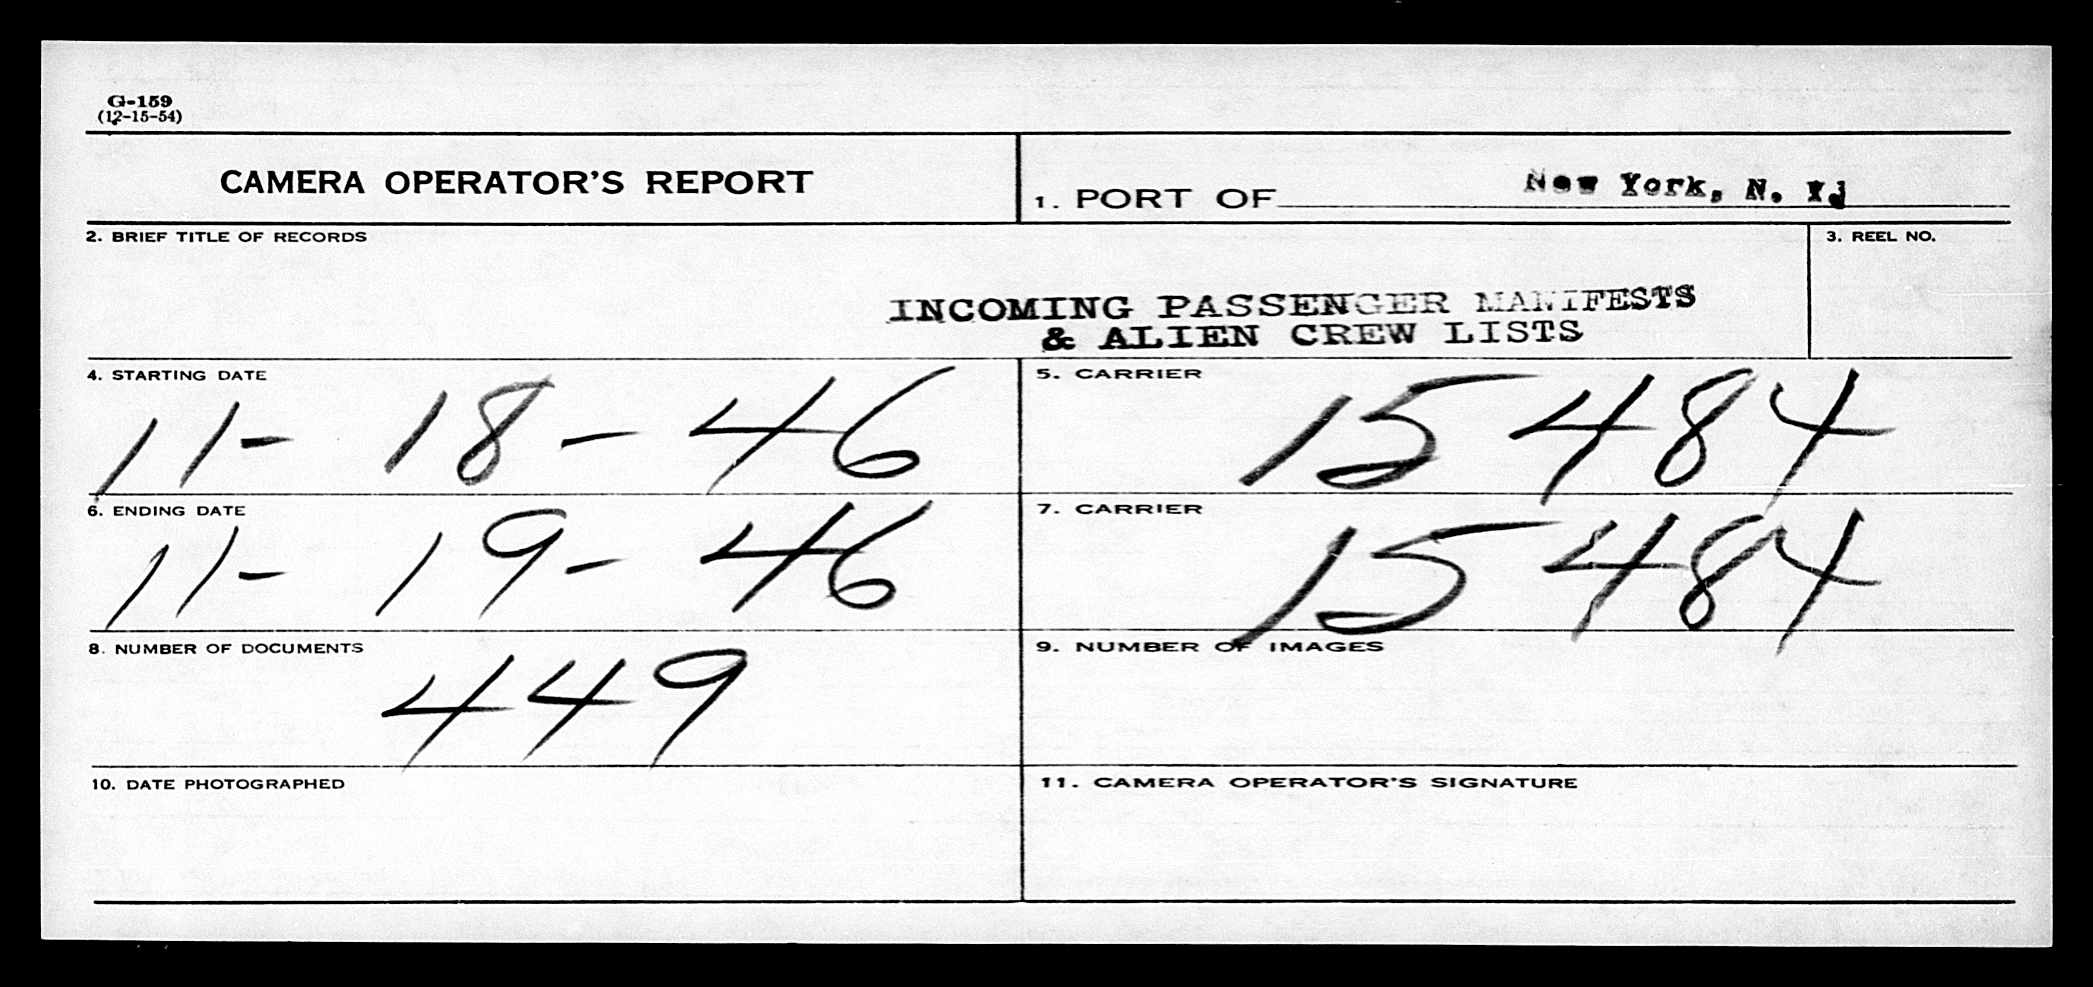 G-159
(12-15-54)
CAMERA OPERATOR'S REPORT
1. PORT OF New York, N. Y.
2. BRIEF TITLE OF RECORDS
3. REEL NO.
INCOMING PASSENGER MANIFESTS
& ALIEN CREW LISTS
4. STARTING DATE
11-18-46
5. CARRIER
15484
6. ENDING DATE
11-19-46
7. CARRIER
15484
8. NUMBER OF DOCUMENTS
449
9. NUMBER OF IMAGES
10. DATE PHOTOGRAPHED
11. CAMERA OPERATOR'S SIGNATURE